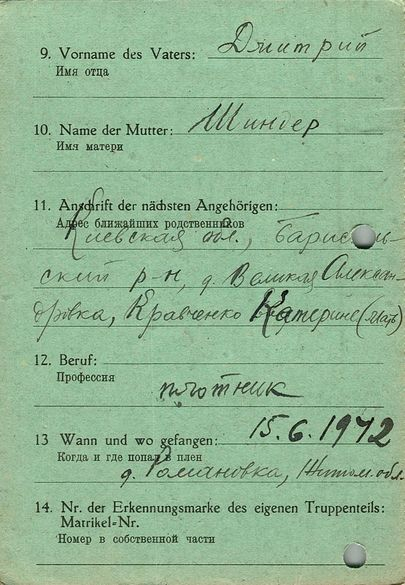 9. Vorname des Vaters: Дмитрий
Имя отца
10. Name der Mutter: Шиндер
Имя матери
11. Anschrift der nächsten Angehörigen:
Адрес ближайших родственников
Киевская обл.,
ский р-н, д. Великая Александ-
ровка, Кравченко Катерине (мать)
12. Beruf:
Профессия
плотник
13 Wann und wo gefangen: 15.6.1942
Когда и где попал в плен
д. Романовка, Житом. обл.
14. Nr. der Erkennungsmarke des eigenen Truppenteils:
Matrikel-Nr.
Номер в собственной части